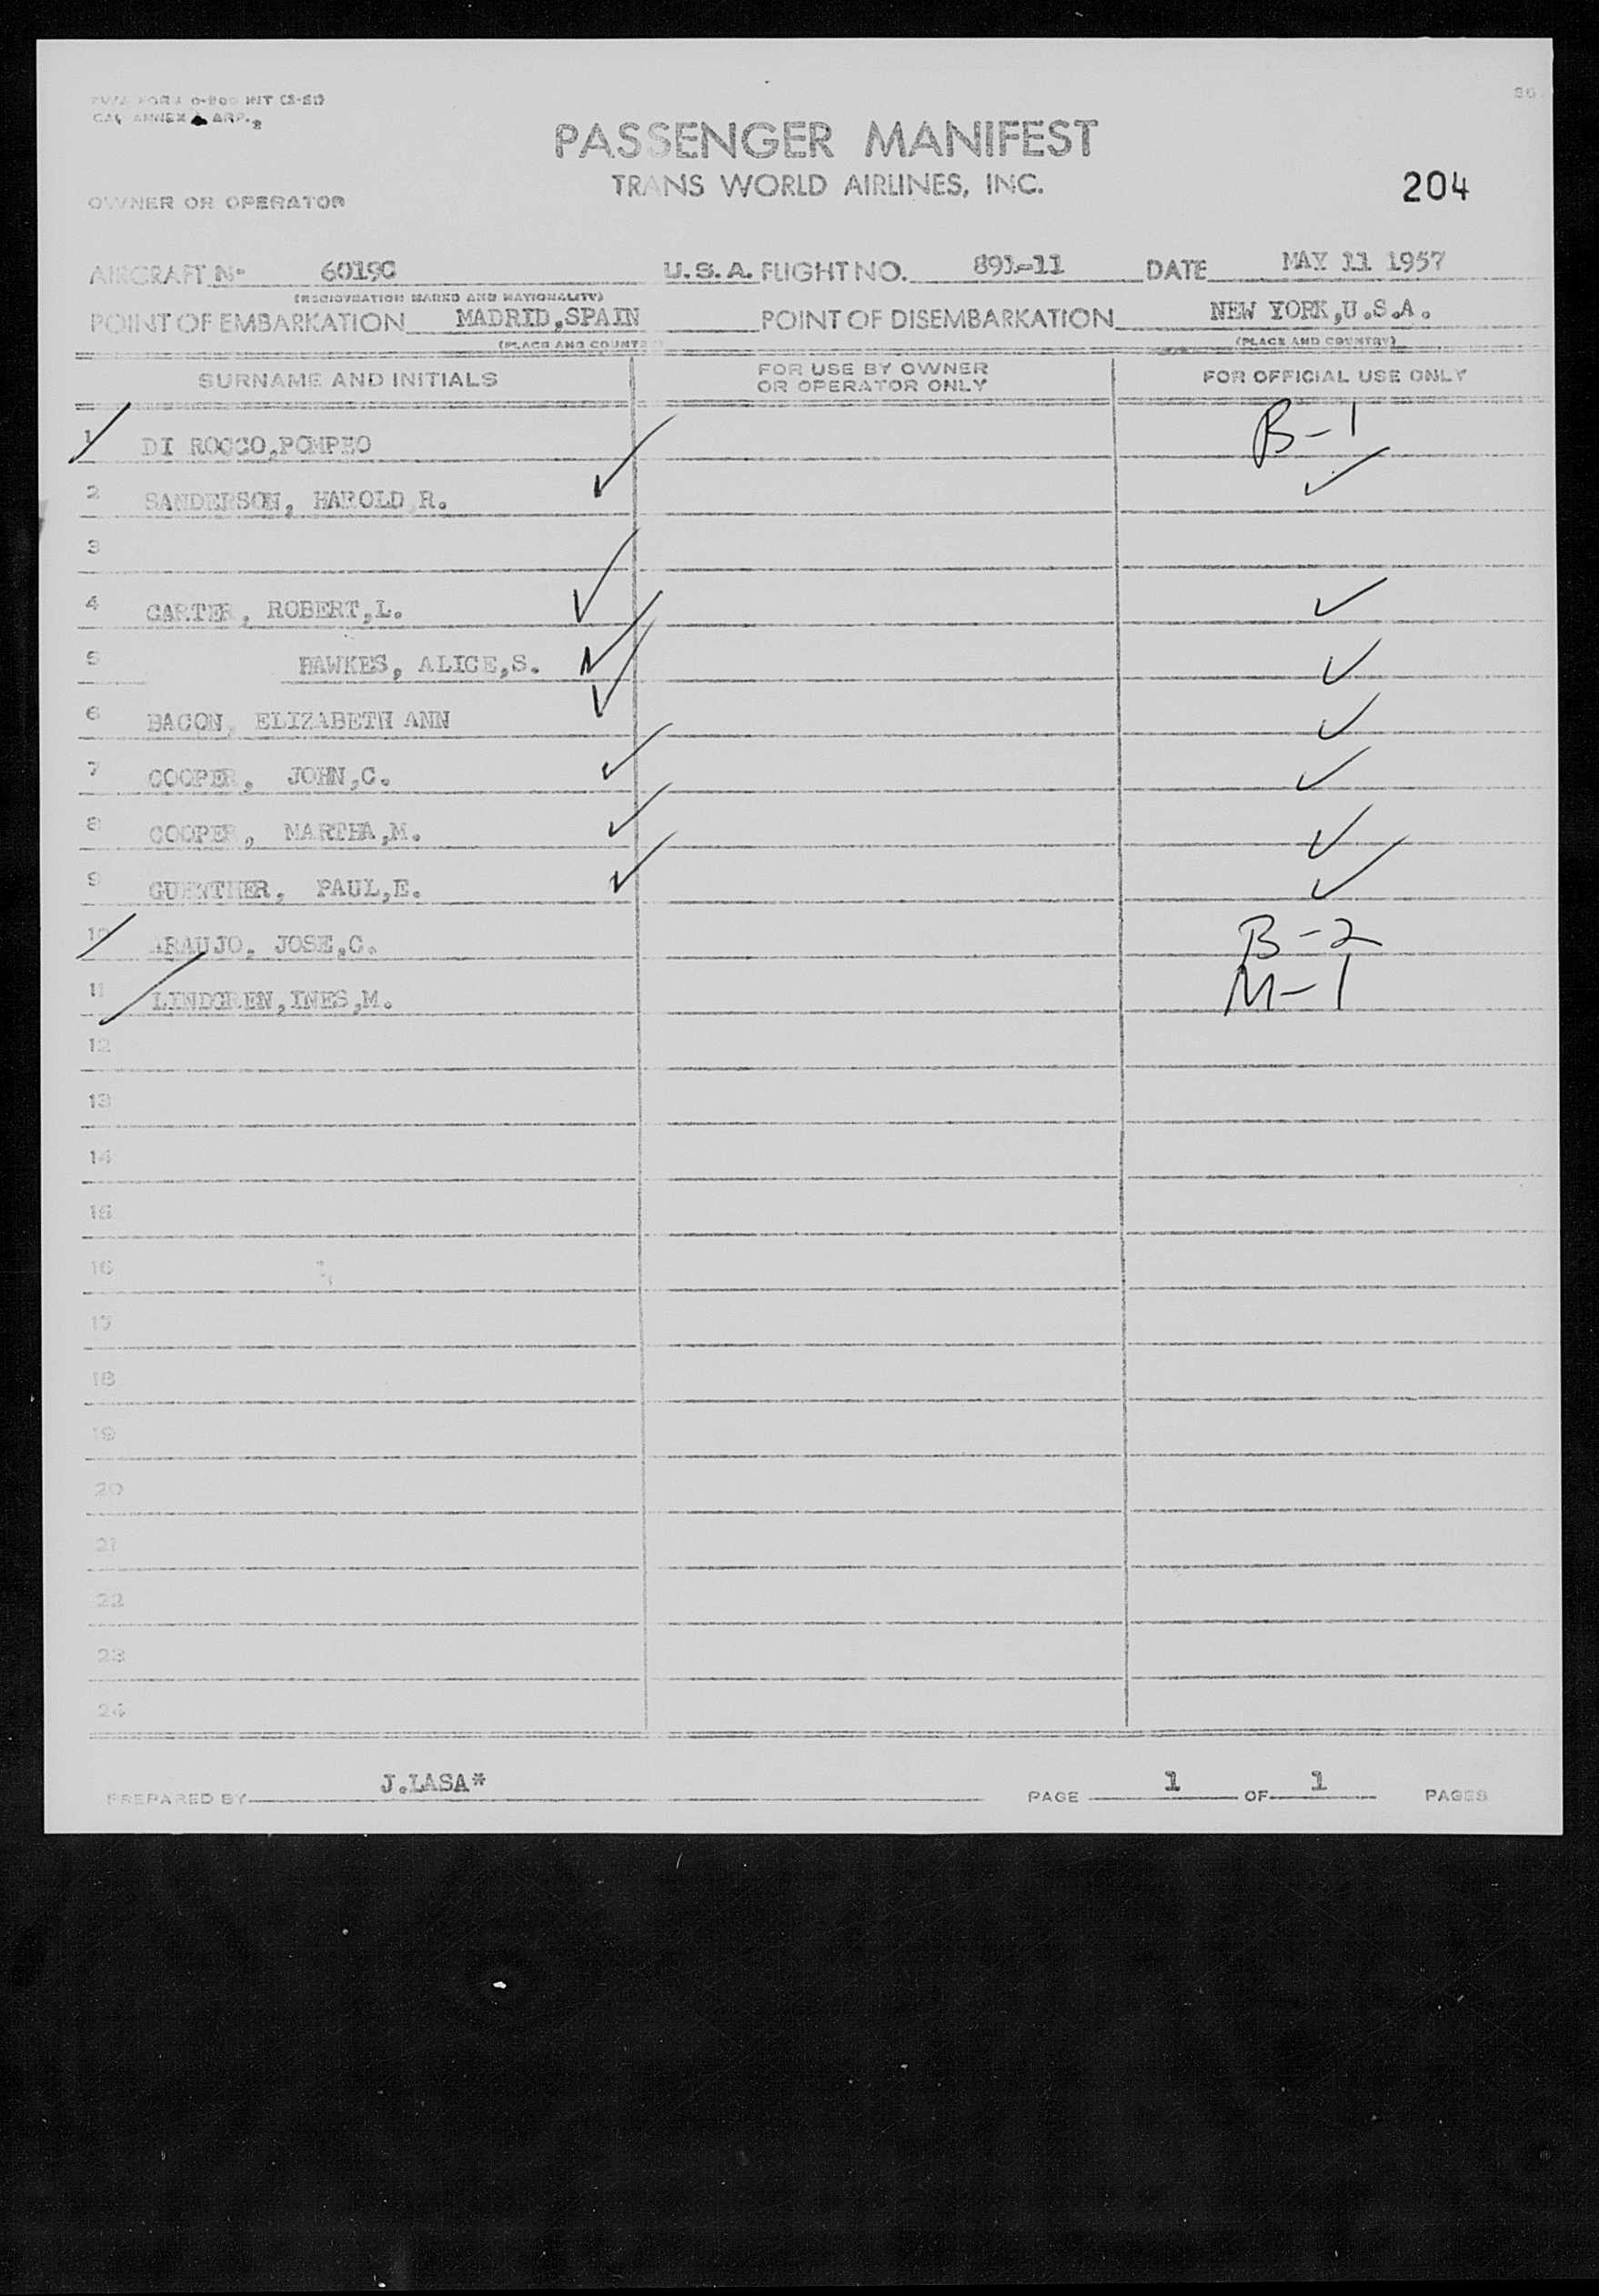 TWA FORM O-800 INT (3-51)
CAL ANNEX ARP. 2
PASSENGER MANIFEST
TRANS WORLD AIRLINES, INC.
204
OWNER OR OPERATOR
AIRCRAFT No 6019C U.S.A. FLIGHT NO. 891-11 DATE MAY 11 1957
(REGISTRATION MARKS AND NATIONALITY)
POINT OF EMBARKATION MADRID,SPAIN POINT OF DISEMBARKATION NEW YORK,U.S.A.
(PLACE AND COUNTRY) (PLACE AND COUNTRY)
SURNAME AND INITIALS FOR USE BY OWNER OR OPERATOR ONLY FOR OFFICIAL USE ONLY
1 DI ROCCO,POMPEO B-1
2 SANDERSON, HAROLD R. ✓ ✓
3
4 CARTER, ROBERT,L. ✓ ✓
5 HAWKES, ALICE,S. ✓ ✓
6 BACON, ELIZABETH ANN ✓ ✓
7 COOPER, JOHN,C. ✓ ✓
8 COOPER, MARTHA,M. ✓ ✓
9 GUENTHER, PAUL,E. ✓ ✓
10 ARAUJO, JOSE,C. B-2
11 LINDGREN,INES,M. M-1
12
13
14
15
16
17
18
19
20
21
22
23
24
PREPARED BY J.LASA* PAGE 1 OF 1 PAGES